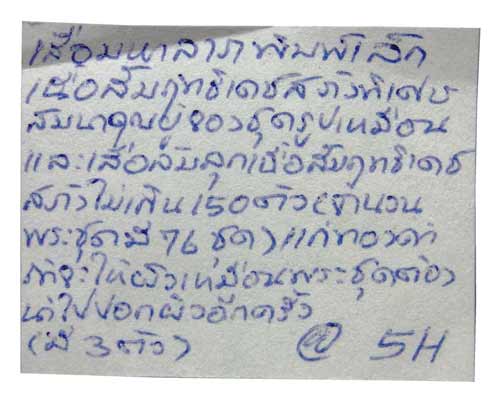 เสือมหาลาภาพิมพ์เล็ก
เนื้อสัมฤทธิ์เดชสภาพพิเศษ
สมนาคุณผู้จองชุดรูปเหมือน
และเสือลิ้มลุกเนื้อสัมฤทธิ์เดช
สภาพไม่เกิน 150 ตัว (จำนวน
พระชุดมี 76 ชุด) แก่ทองคำ
ถ้าจะให้ผิวเหมือนพระชุดต้อง
นำไปปอกผิวอีกครั้ง
(มี 3 ตัว) @ 5H